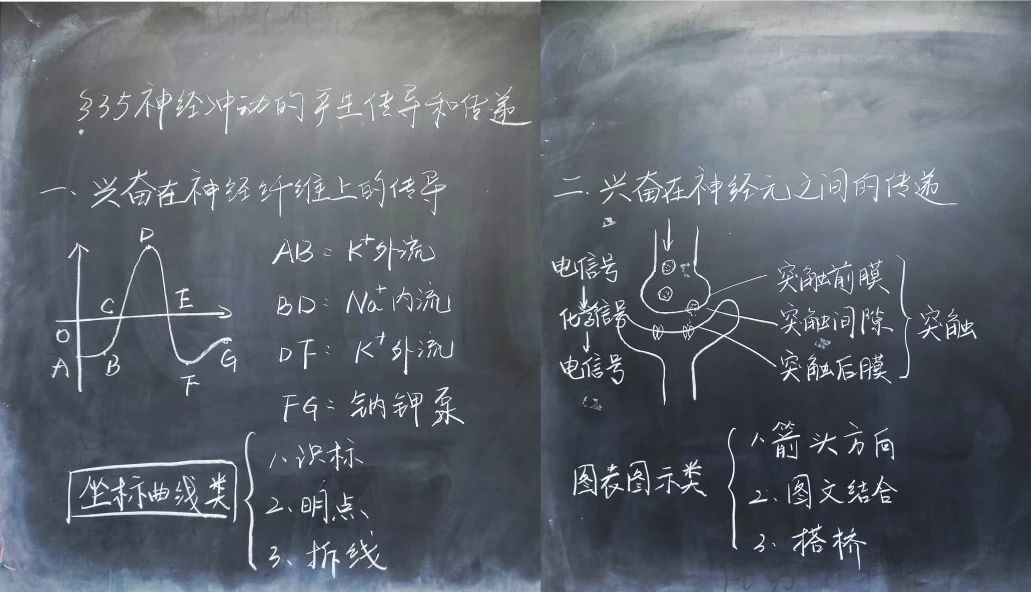 §35神经冲动的产生传导和传递
一、兴奋在神经纤维上的传导
D
C
E
O
A
B
F
G
AB: K⁺外流
BD: Na⁺内流
DF: K⁺外流
FG: 钠钾泵
坐标曲线类
1、识标
2、明点
3、拆线
二、兴奋在神经元之间的传递
电信号
化学信号
电信号
突触前膜
突触间隙
突触后膜
突触
图表图示类
1、箭头方向
2、图文结合
3、搭桥